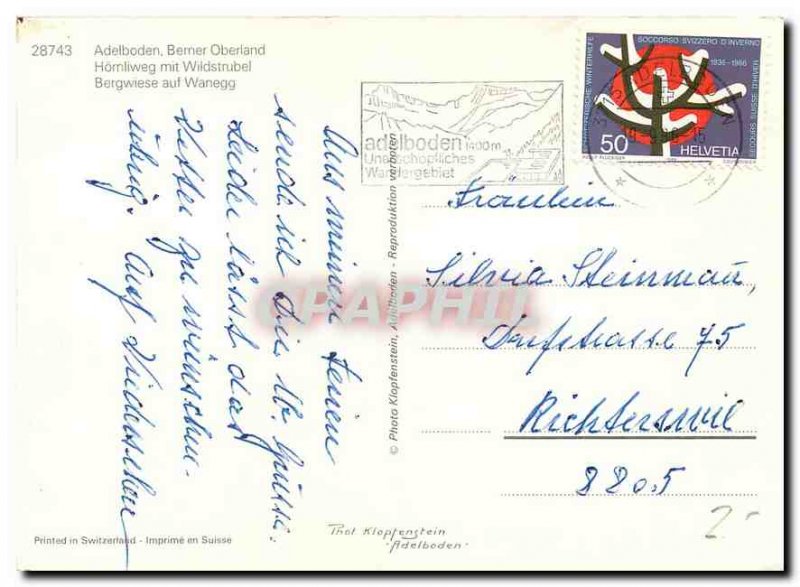 28743 Adelboden, Berner Oberland
Hörnliweg mit Wildstrubel
Bergwiese auf Wanegg
adelboden 1400m
Unerschöpfliches
Wandergebiet
SCHWEIZERISCHE WINTERHILFE
SOCCORSO SVIZZERO D'INVERNO
1936-1986
SECOURS SUISSE D'HIVER
50 HELVETIA
Aus meinen Ferien
sende ich Dir lb. Grüsse.
Leider lässt das
Wetter zu wünschen
übrig. Auf Wiedersehen
© Photo Klopfenstein, Adelboden - Reproduktion verboten
Fräulein
Silvia Steinmau,
Dorfstrasse 75
Richterswil
8805
Printed in Switzerland - Imprimé en Suisse
Phot. Klopfenstein
-Adelboden-
2.-
CPAPHIL